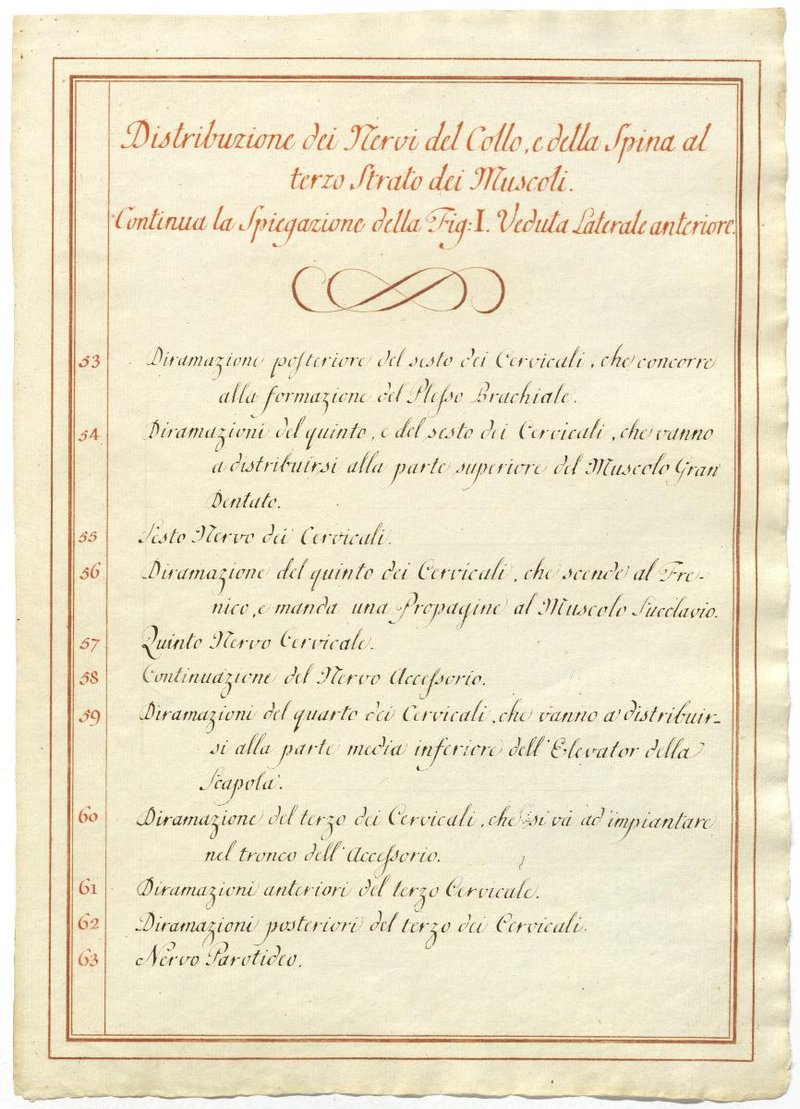 Distribuzione dei Nervi del Collo, e della Spina al
terzo Strato dei Muscoli.
Continua la Spiegazione della Fig: I. Veduta Laterale anteriore.
53 Diramazione posteriore del sesto dei Cervicali, che concorre
alla formazione del Plesso Brachiale.
54 Diramazioni del quinto, e del sesto dei Cervicali, che vanno
a distribuirsi alla parte superiore del Muscolo Gran
Dentato.
55 Sesto Nervo dei Cervicali.
56 Diramazione del quinto dei Cervicali, che scende al Fre-
nico, e manda una Propagine al Muscolo Succlavio.
57 Quinto Nervo Cervicale.
58 Continuazione del Nervo Accessorio.
59 Diramazioni del quarto dei Cervicali, che vanno a' distribuir-
si alla parte media inferiore dell' Elevator della
Scapola.
60 Diramazione del terzo dei Cervicali, che si và ad impiantare
nel tronco dell' Accessorio.
61 Diramazioni anteriori del terzo Cervicale.
62 Diramazioni posteriori del terzo dei Cervicali.
63 Nervo Parotideo.